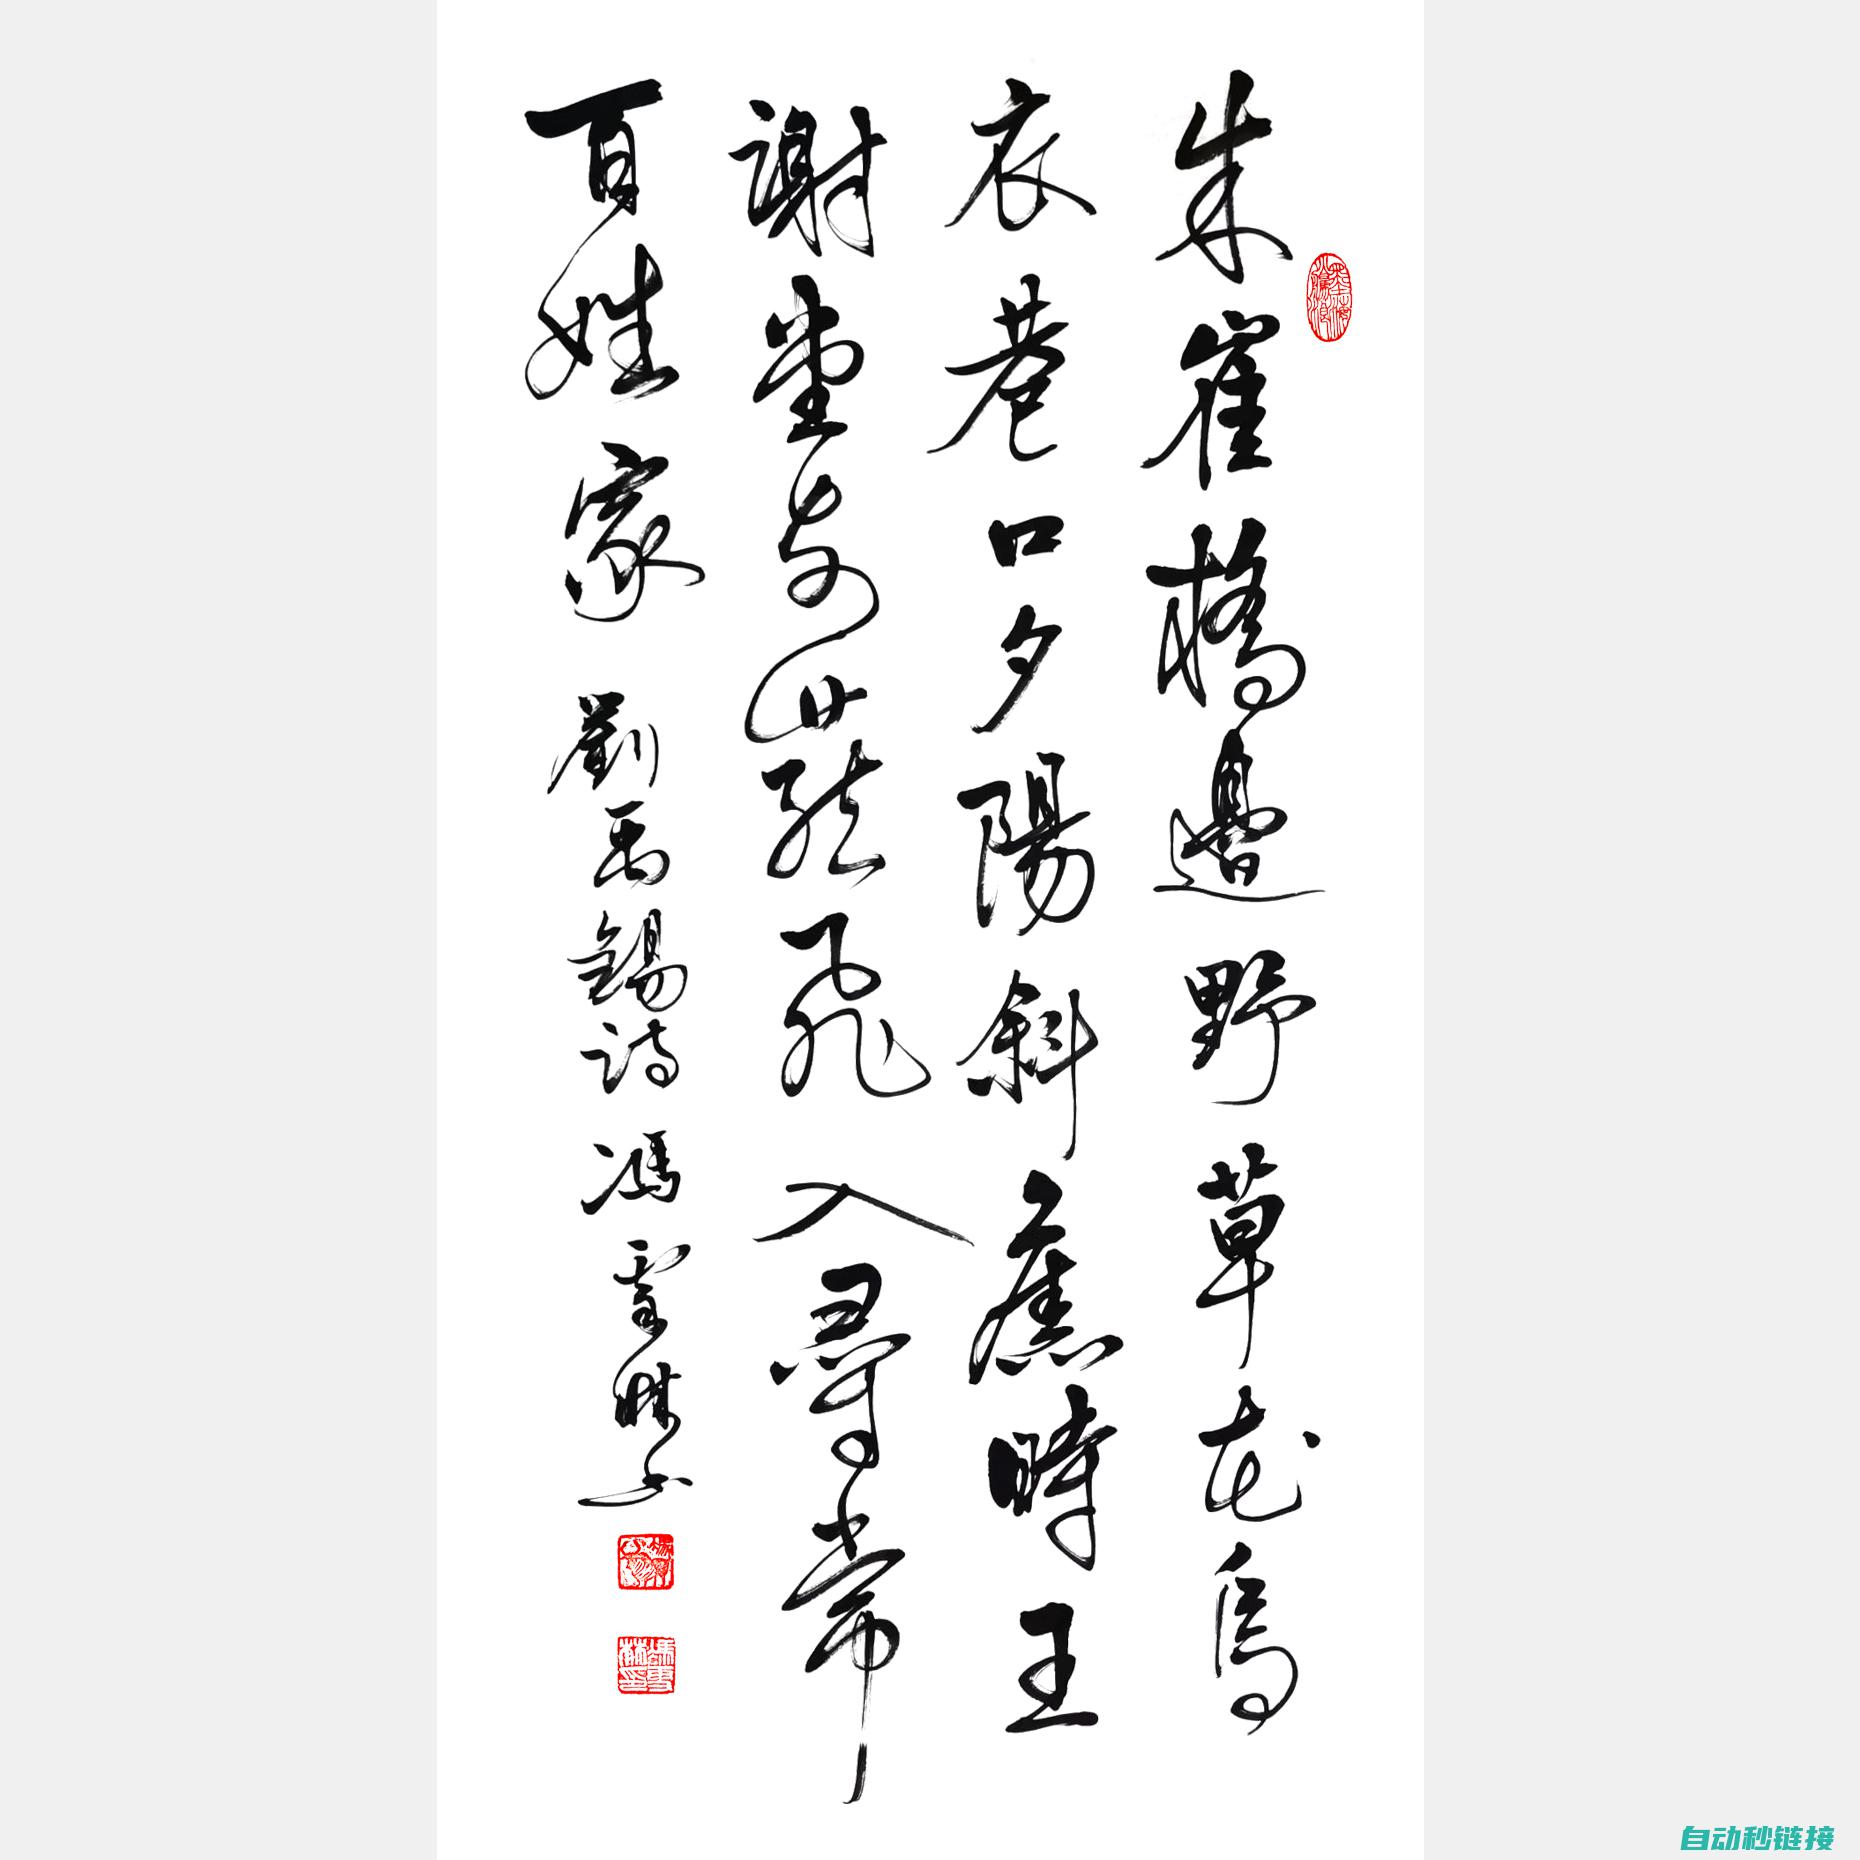 朱雀橋邊野草花烏
衣巷口夕陽斜舊時王
謝堂前燕飛入尋常
百姓家 劉禹錫詩 馮雪林書
自动秒链接